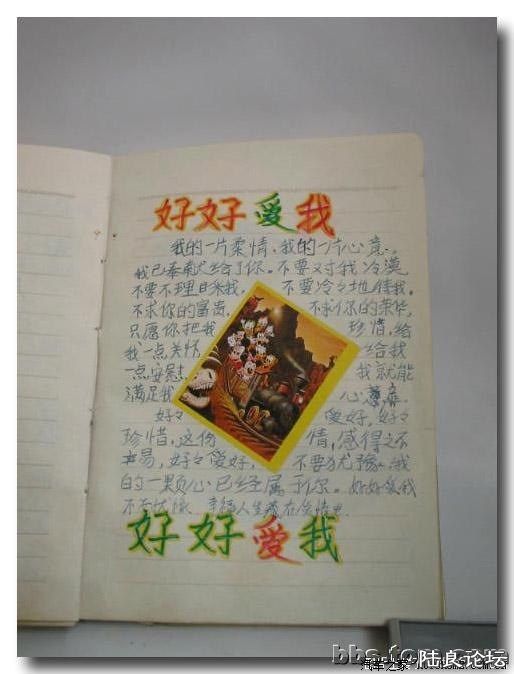 好好爱我
我的一片柔情、我的一片心意、
我已奉献给了你。不要对我冷漠
不要不理睬我, 不要冷冷地待我。
不求你的富贵, 不求你的荣华,
只愿你把我 珍惜,给
我一点关怀 给我
一点安慰 我就能
满足我 心意
好々 爱好,好々
珍惜,这份 情,感得之不
易,好々爱好, 不要犹豫、我
的一颗心已经属于你。好好爱我
不 幸福人生藏在爱情里
好好爱我
bbs.
汽车之家
陆良论坛